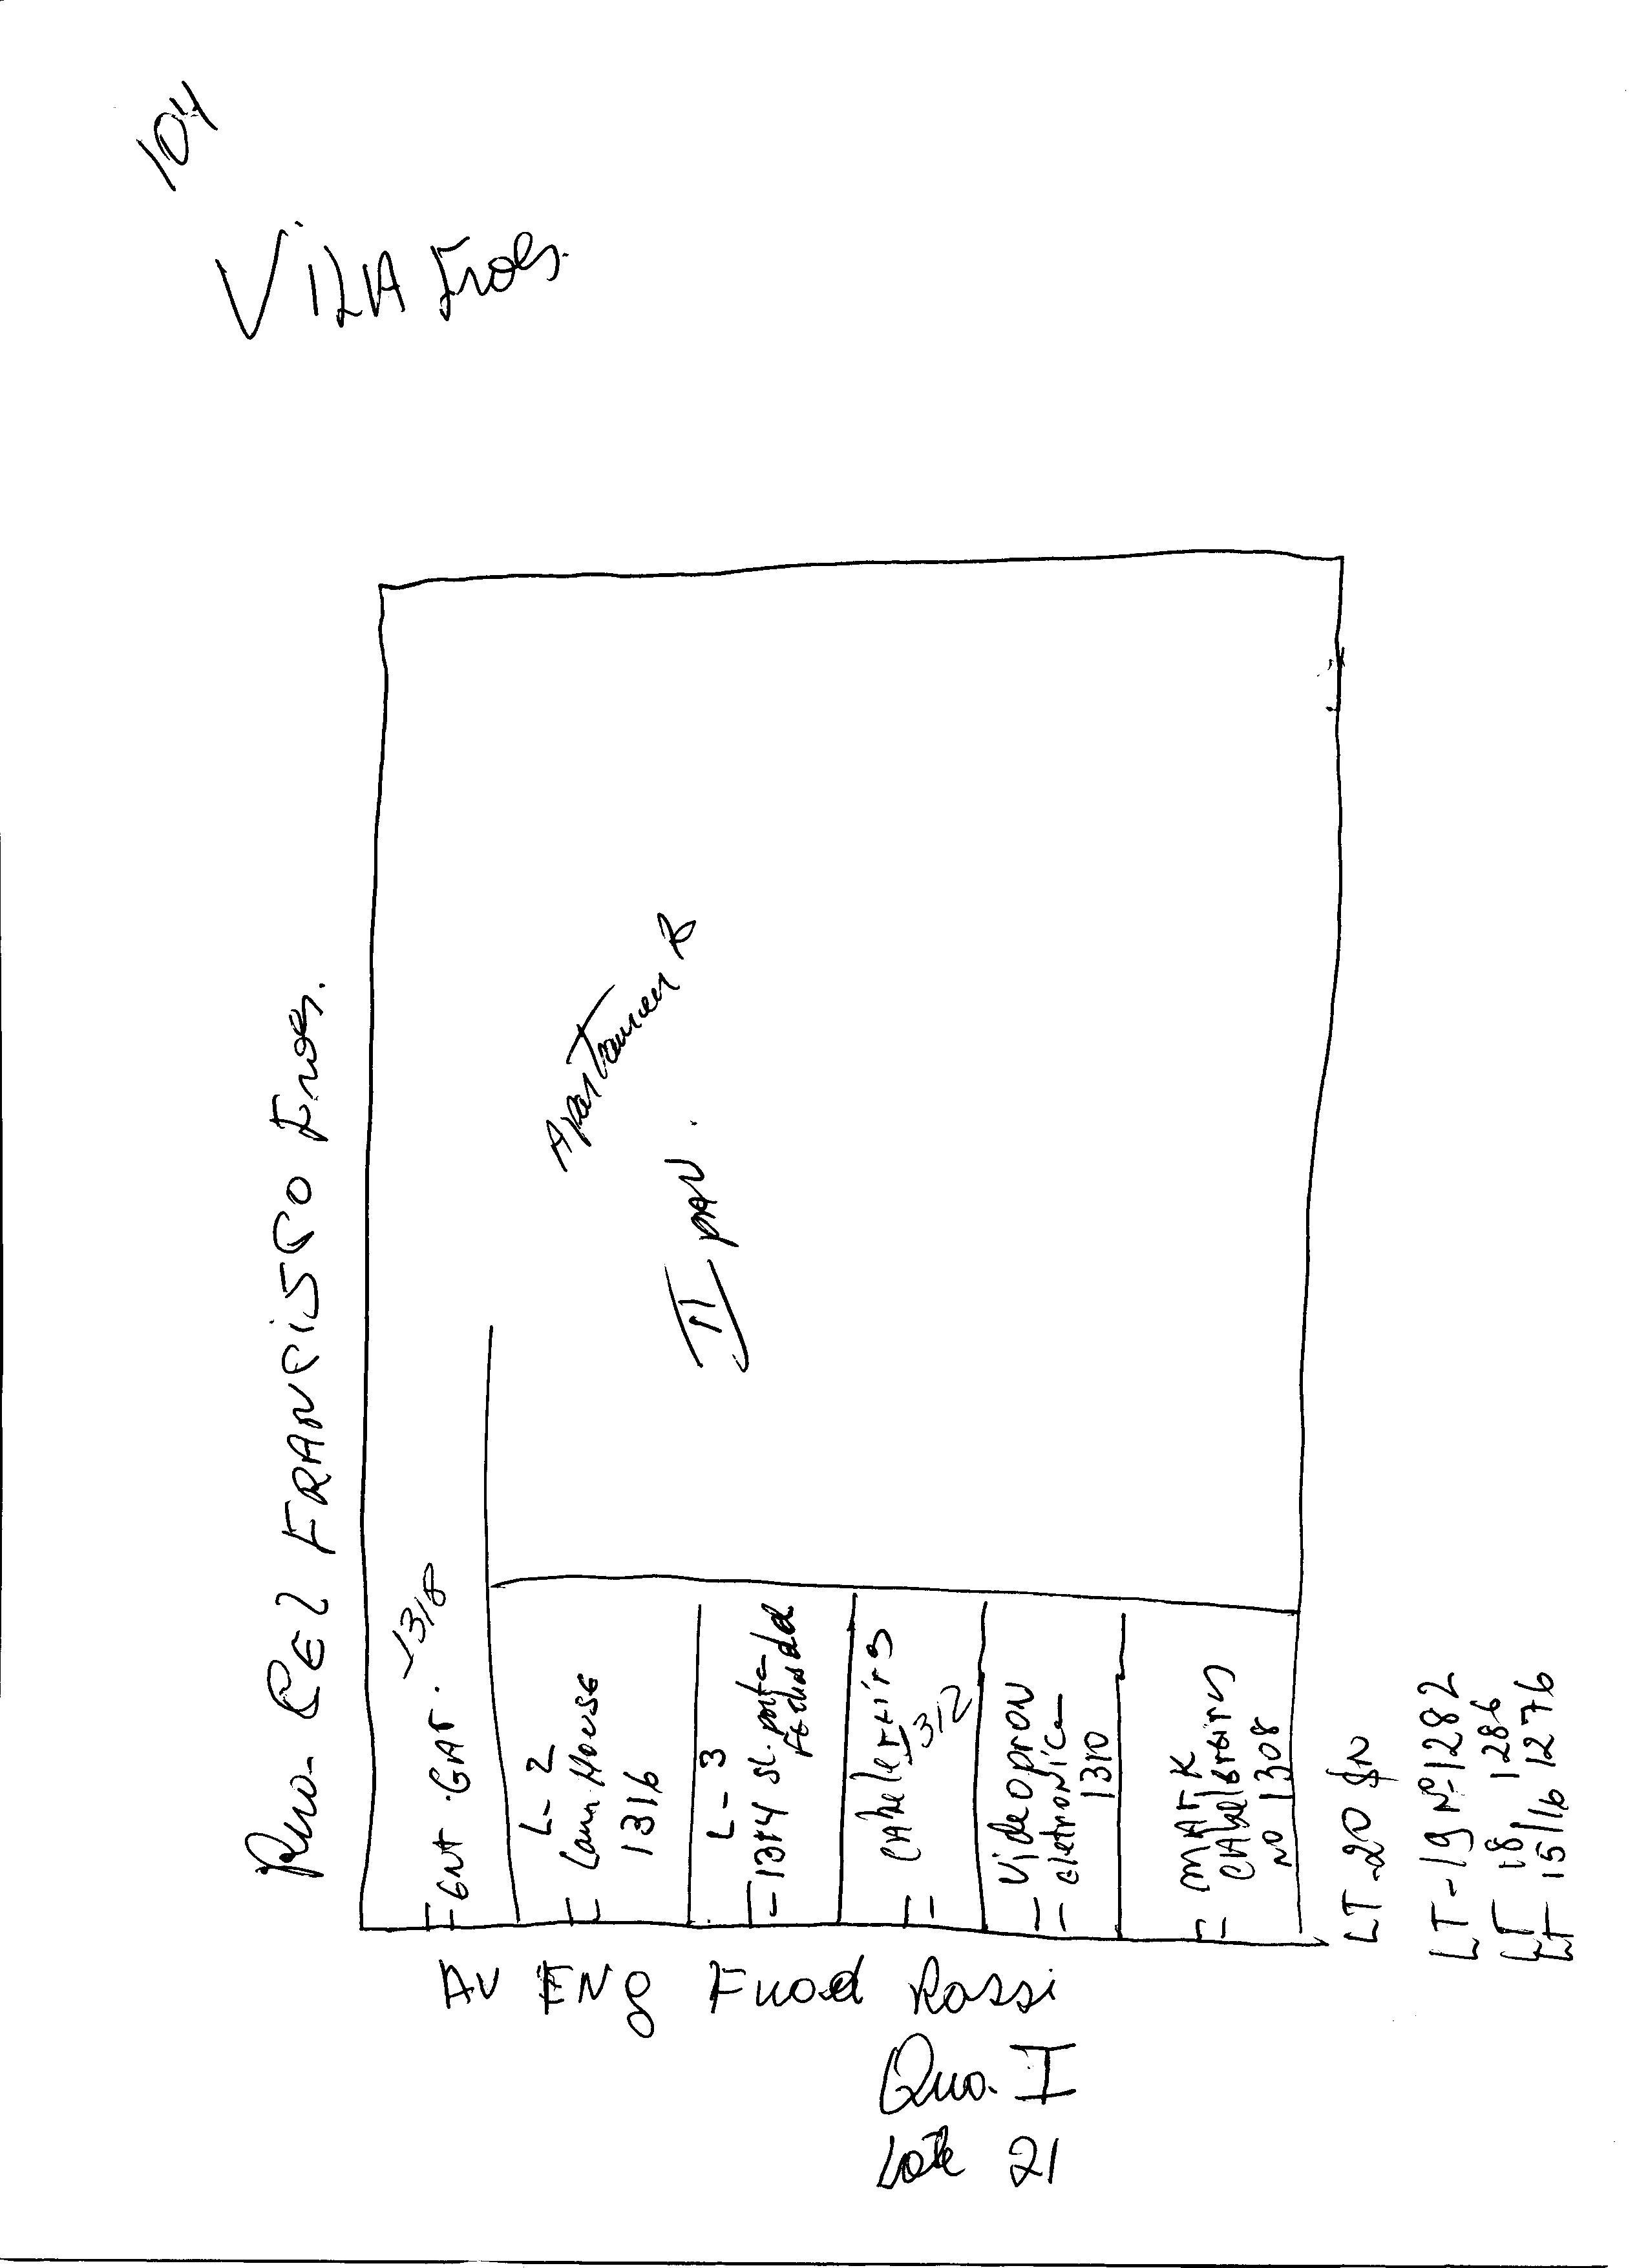 104
VILA Froes.
Rua. CEL FRANCISCO Froes.
Apartamento
II PAV.
ENT. GAT. 1318
L-2
Laun House
1316
L-3
1314 SL. porta
fechada
CAbelereiro
1312
Videopron
eletronica
1310
MARK
CAbelereiros
NO 1308
LT-20 SN
LT-19 Nº 1282
LT 18 1286
LT 15/16 1276
AV ENg Fuad Rassi
Qua. I
Lote 21